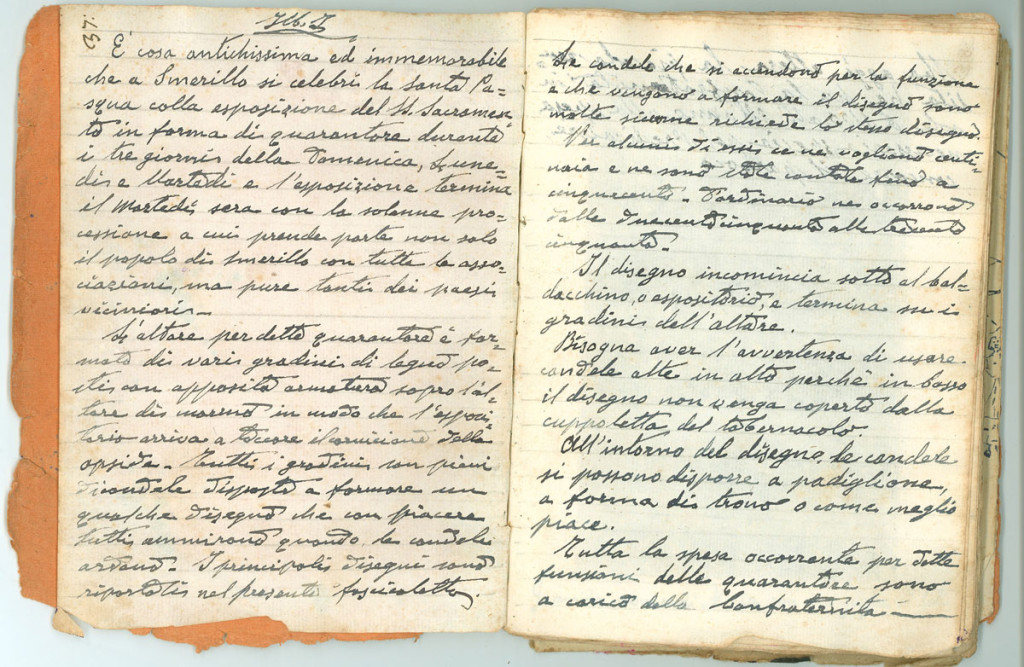 37.
È cosa antichissima ed immemorabile
che a Smerillo si celebri la santa Pa=
squa colla esposizione del SS. Sacramen=
to in forma di quarantore durante
i tre giorni della Domenica, Lune=
di e Martedi e l'esposizione termina
il Martedi sera con la solenne pro=
cessione a cui prende parte non solo
il popolo di Smerillo con tutte le asso=
ciazioni, ma pure tanti dei paesi
viciniori.–
L'altare per dette quarantore è for=
mato di varii gradini di legno po=
sti con apposita armatura sopra l'al=
tare di marmo in modo che l'esposi=
torio arriva a toccare il cornicione della
apside.– Tutti i gradini son pieni
di candele disposte a formare un
qualche disegno che con piacere
tutti ammirano quando le candele
ardono.– I principali disegni sono
riportati nel presente fascicoletto.
Le candele che si accendono per la funzione
e che vengono a formare il disegno sono
molte siccome richiede lo stesso disegno.
Per alcuni di essi ce ne vogliono centi=
naia e ne sono state contate fino a
cinquecento.– D'ordinario ne occorrono
dalle duecentocinquanta alle trecento
cinquanta.–
Il disegno incomincia sotto al bal=
dacchino, o espositorio, e termina su i
gradini dell'altare.
Bisogna aver l'avvertenza di usare
candele alte in alto perchè in basso
il disegno non venga coperto dalla
cuppoletta del tabernacolo.
All'intorno del disegno le candele
si possono disporre a padiglione,
a forma di trono o come meglio
piace.
Tutta la spesa occorrente per dette
funzioni delle quarantore sono
a carico della Confraternita –